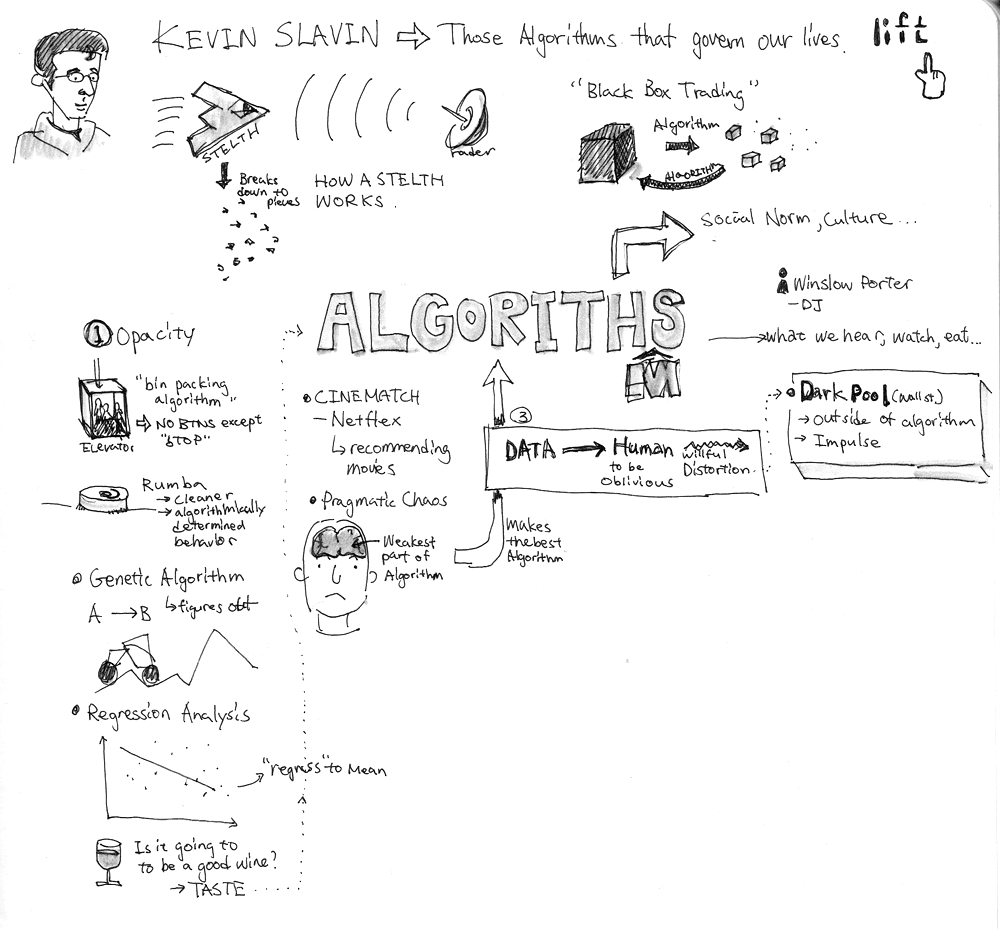 KEVIN SLAVIN ⇨ Those Algorithms that govern our lives.
lift
STELTH
rader
Breaks
down to
pieves
HOW A STELTH
WORKS.
"Black Box Trading"
Algorithm
ALGORITHM
Social Norm, Culture...
ALGORITHS
EM
Winslow Porter
- DJ
what we hear, watch, eat...
① Opacity
"bin packing
algorithm"
→ NO BTNS except
"STOP"
Elevator
Rumba
→ cleaner
→ algorithmically
determined
behavior
Genetic Algorithm
A → B ↳ figures out
Regression Analysis
"regress" to Mean
Is it going to
to be a good wine?
→ TASTE
CINEMATCH
- Netflex
↳ recommending
movies
Pragmatic Chaos
Weakest
part of
Algorithm
Makes
the best
Algorithm
③
DATA → Human willful
to be Distortion
Oblivious
Dark Pool (Wall st.)
→ outside of algorithm
→ Impulse